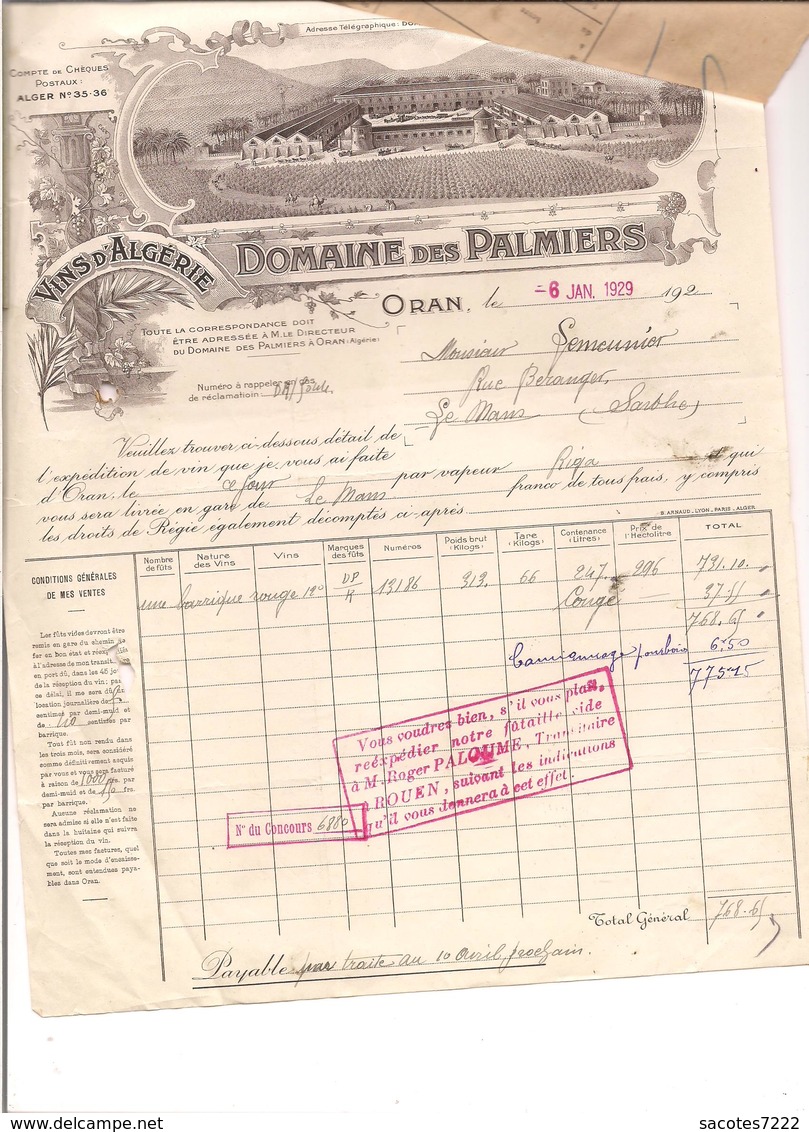 Adresse Télégraphique:
COMPTE DE CHÈQUES
POSTAUX:
ALGER Nº 35-36
VINS D'ALGÉRIE
DOMAINE DES PALMIERS
ORAN, le -6 JAN. 1929 192
TOUTE LA CORRESPONDANCE DOIT
ÊTRE ADRESSÉE À M. LE DIRECTEUR
DU DOMAINE DES PALMIERS À ORAN (Algérie)
Numéro à rappeler en cas
de réclamation:
Monsieur Lemeunier
Rue Béranger
Le Mans (Sarthe)
Veuillez trouver ci-dessous détail de
l'expédition de vin que je vous ai faite
d'Oran, le ce jour par vapeur Riga et qui
vous sera livrée en gare de Le Mans franco de tous frais, y compris
les droits de Régie également décomptés ci-après
B. ARNAUD - LYON - PARIS - ALGER
CONDITIONS GÉNÉRALES
DE MES VENTES
Les fûts vides devront être
remis en gare du chemin de
fer en bon état et réexpédiés
à l'adresse de mon transit.
en port dû, dans les 45 jours
de la réception du vin; passé
ce délai, il me sera dû
location journalière de
centimes par demi-muid et
de 10 centimes par
barrique.
Tout fût non rendu dans
les trois mois, sera considéré
comme définitivement acquis
par vous et vous sera facturé
à raison de 1000 frs. par
demi-muid et de 150 frs.
par barrique.
Aucune réclamation ne
sera admise si elle n'est faite
dans la huitaine qui suivra
la réception du vin.
Toutes mes factures, quel
que soit le mode d'encaisse-
ment, sont entendues paya-
bles dans Oran.
Nombre de fûts Nature des Vins Vins Marques des fûts Numéros Poids brut (Kilogs) Tare (Kilogs) Contenance (Litres) Prix de l'Hectolitre TOTAL
une barrique rouge 12° DP/R 13186 313 66 247 296 731.10
Congé 37.55
768.65
Camionnage pourboire 6.50
775.15
Vous voudrez bien, s'il vous plaît,
réexpédier notre futaille vide
à M. Roger PALOUME, Transitaire
à ROUEN, suivant les indications
qu'il vous donnera à cet effet.
Nº du Concours 6880
Total Général 768.65
Payable par traite au 10 Avril prochain.
sacotes7222